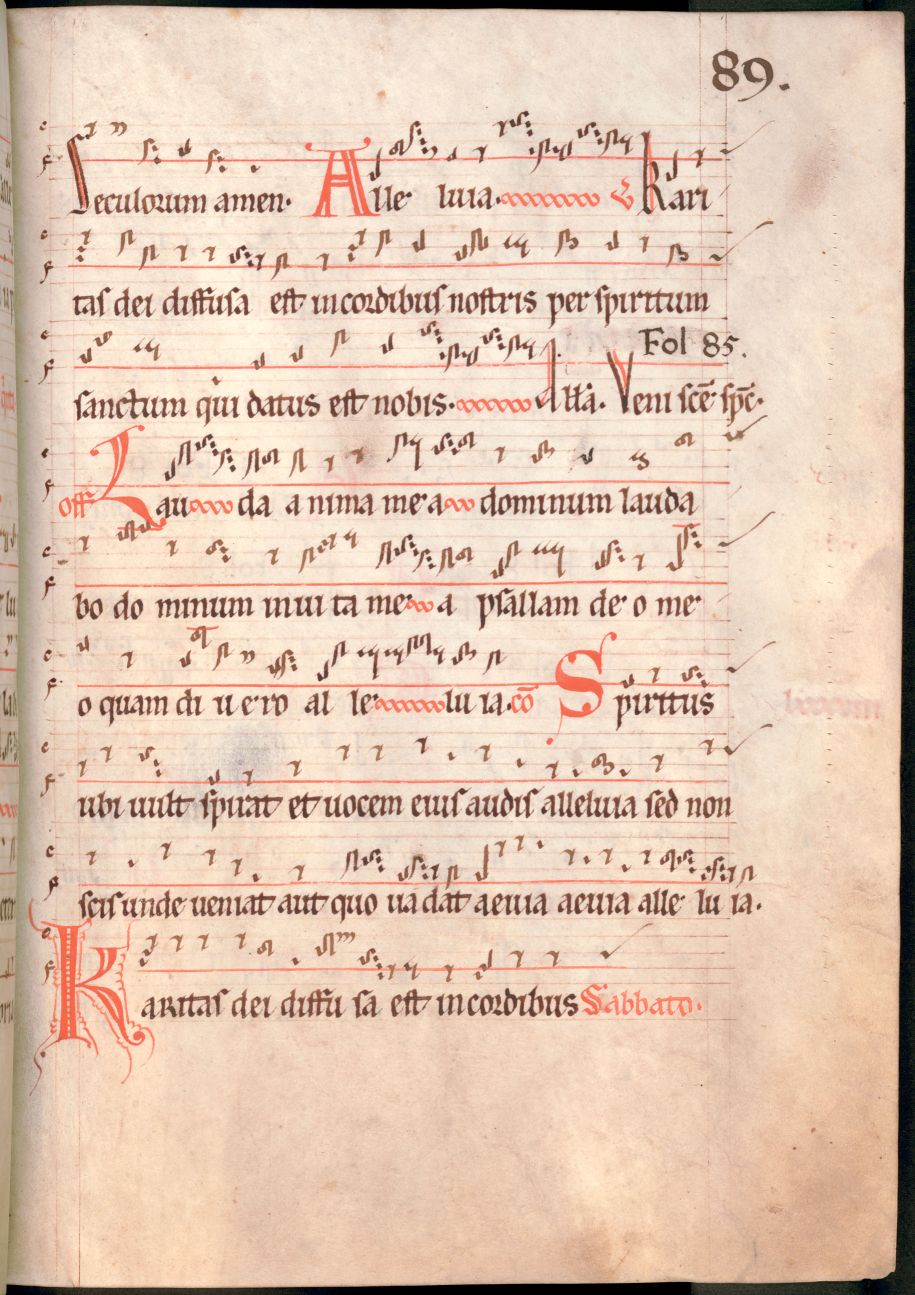 89.
Seculorum amen. Alle luia. V Kari
tas dei diffusa est in cordibus nostris per spiritum
Fol 85.
sanctum qui datus est nobis. Allā. Veni scē spc̄.
Off Lau da a nima me a dominum lauda
bo do minum in ui ta me a psallam de o me
o quam di u e ro al le lu ia. cō Spiritus
ubi uult spirat et uocem eius audis alleluia sed non
scis unde ueniat aut quo uadat aeuia aeuia alle lu ia.
Karitas dei diffu sa est in cordibus Sabbato.